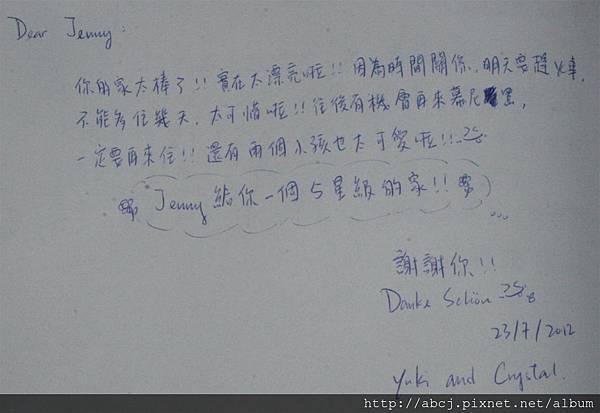 Dear Jenny:
你的家太棒了!! 實在太漂亮啦!! 因為時間關係,明天要趕火車,
不能多住幾天,太可惜啦!! 往後有機會再來慕尼黑,
一定要再來住!! 還有兩個小孩也太可愛啦!!
Jenny 給你一個5星級的家!!
謝謝你!!
Danke Schön
23/7/2012
Yuki and Crystal.
http://abcj.pixnet.net/album